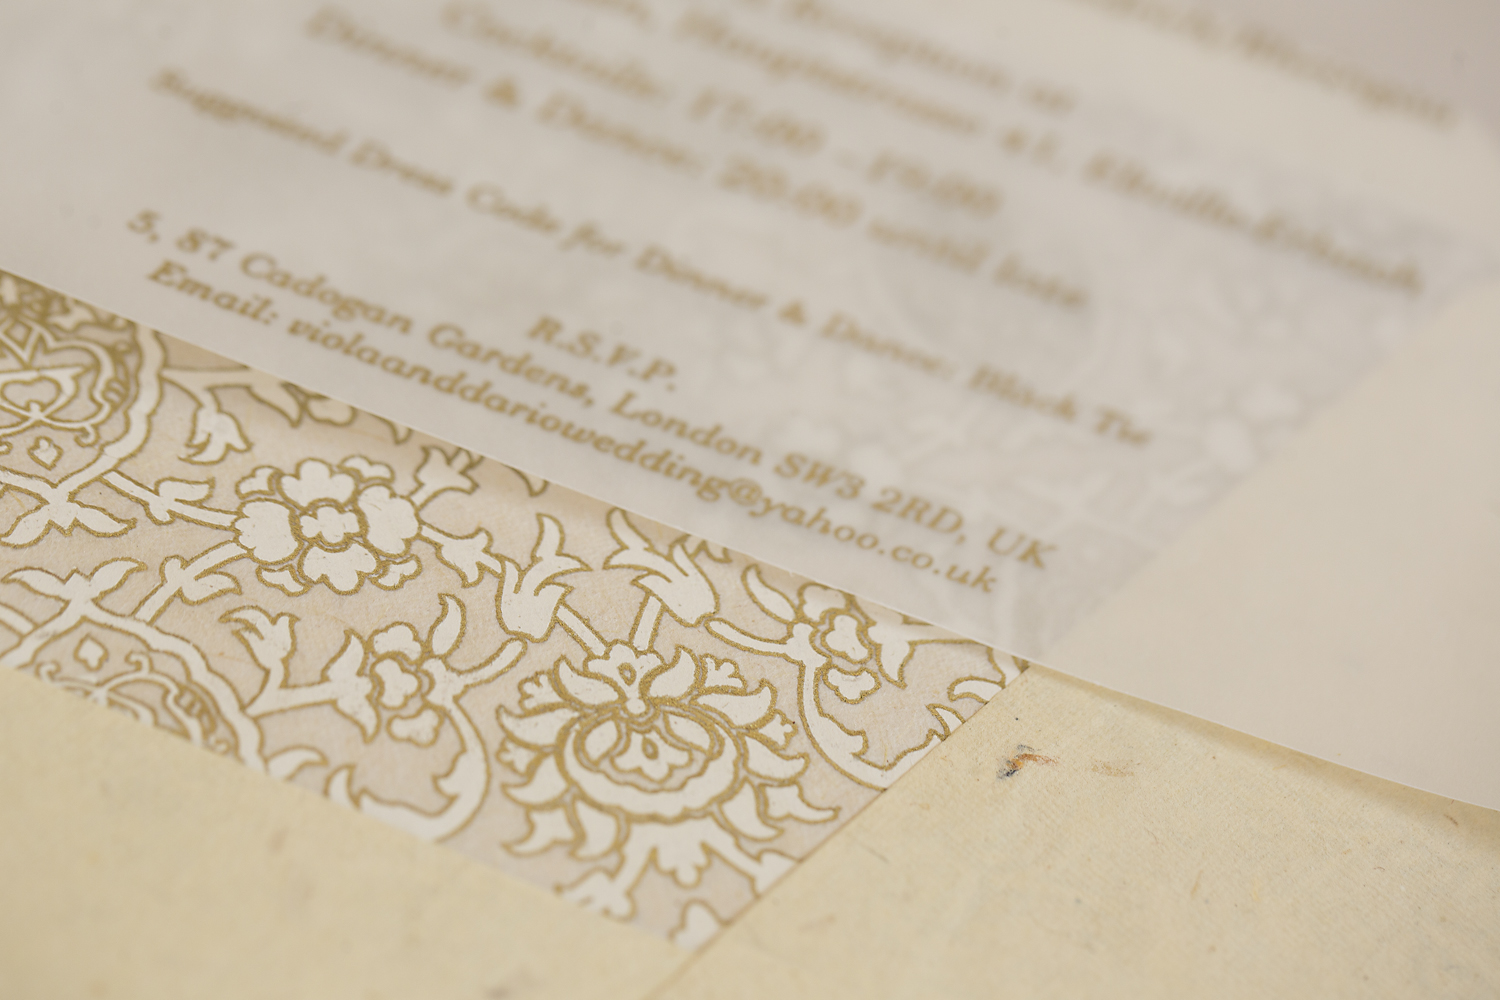 Cocktails: 17.00 - 19.00
Dinner & Dance: 20.00 until late
Suggested Dress Code for Dinner & Dance: Black Tie
R.S.V.P.
5, 87 Cadogan Gardens, London SW3 2RD, UK
Email: violaanddariowedding@yahoo.co.uk